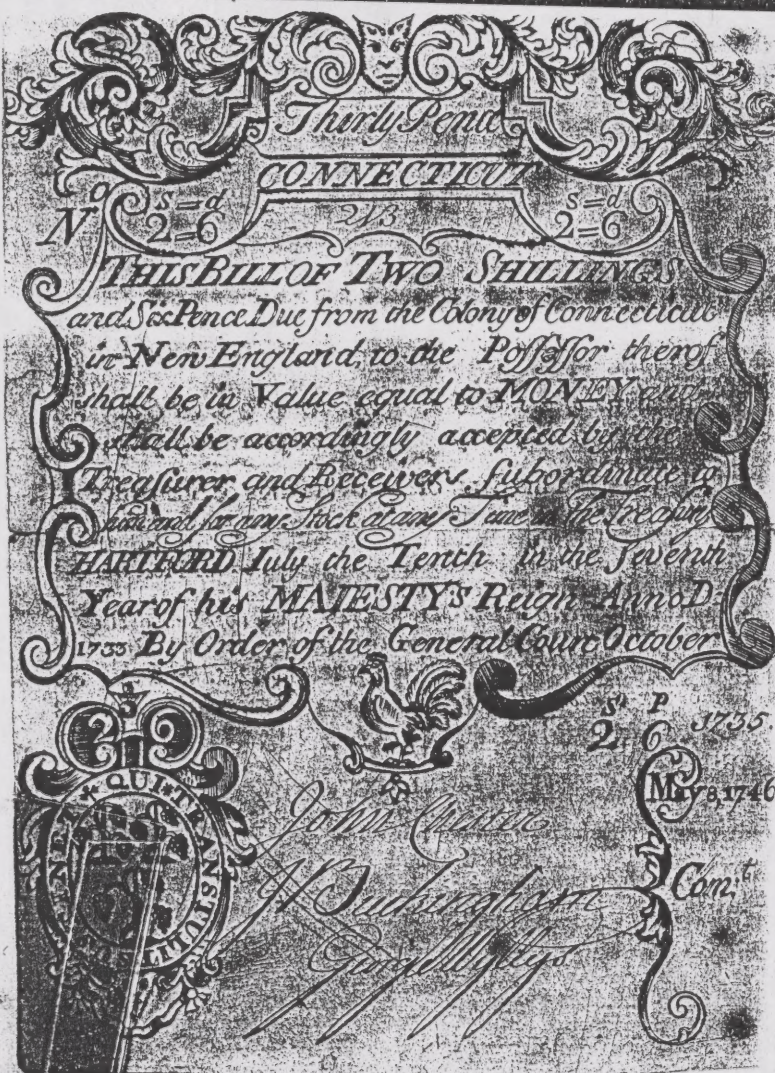 Thirty Pence
CONNECTICUT
No s=d 2=6 s=d 2=6
THIS BILL OF TWO SHILLINGS
and Six Pence Due from the Colony of Connecticut
in New England, to the Poſſeſſor therof
ſhall be in Value equal to MONEY and
ſhall be accordingly accepted by the
Treaſurer and Receivers ſubordinate to
him and for any Stock at any Time the Treaſury
HARTFORD Iuly the Tenth in the ſeventh
Year of his MAIESTY'S Reign Anno D
1733 By Order of the General Court October
s P
2 6 1735
May 8, 1746
QUI TRANSTULIT
John Cheſter
Buckingham
George Wyllys
Com:t